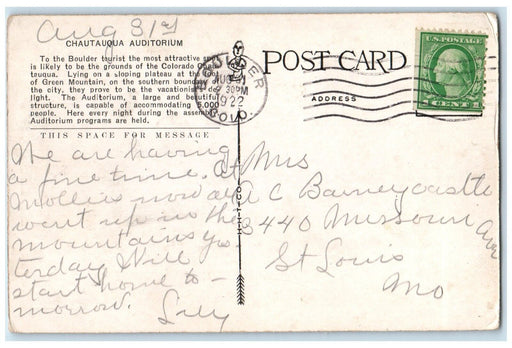 Aug 31st
CHAUTAUQUA AUDITORIUM
To the Boulder tourist the most attractive spot
is likely to be the grounds of the Colorado Chau-
tauqua. Lying on a sloping plateau at the
of Green Mountain, on the southern boundary
the city, they prove to be the vacationist's de-
light. The Auditorium, a large and beautiful
structure, is capable of accommodating 5,000
people. Here every night during the assembly
Auditorium programs are held.
THIS SPACE FOR MESSAGE
We are having
a fine time. At
Mollies now all
went up in the
mountains yes
terday Will
start home to-
morrow. Lily
BOULDER
AUG 31
30PM
1922
COLO.
POST CARD
ADDRESS
U.S. POSTAGE
1 CENT 1
Mrs
A C Barneycastle
3440 Missouri Ave
St Louis
Mo